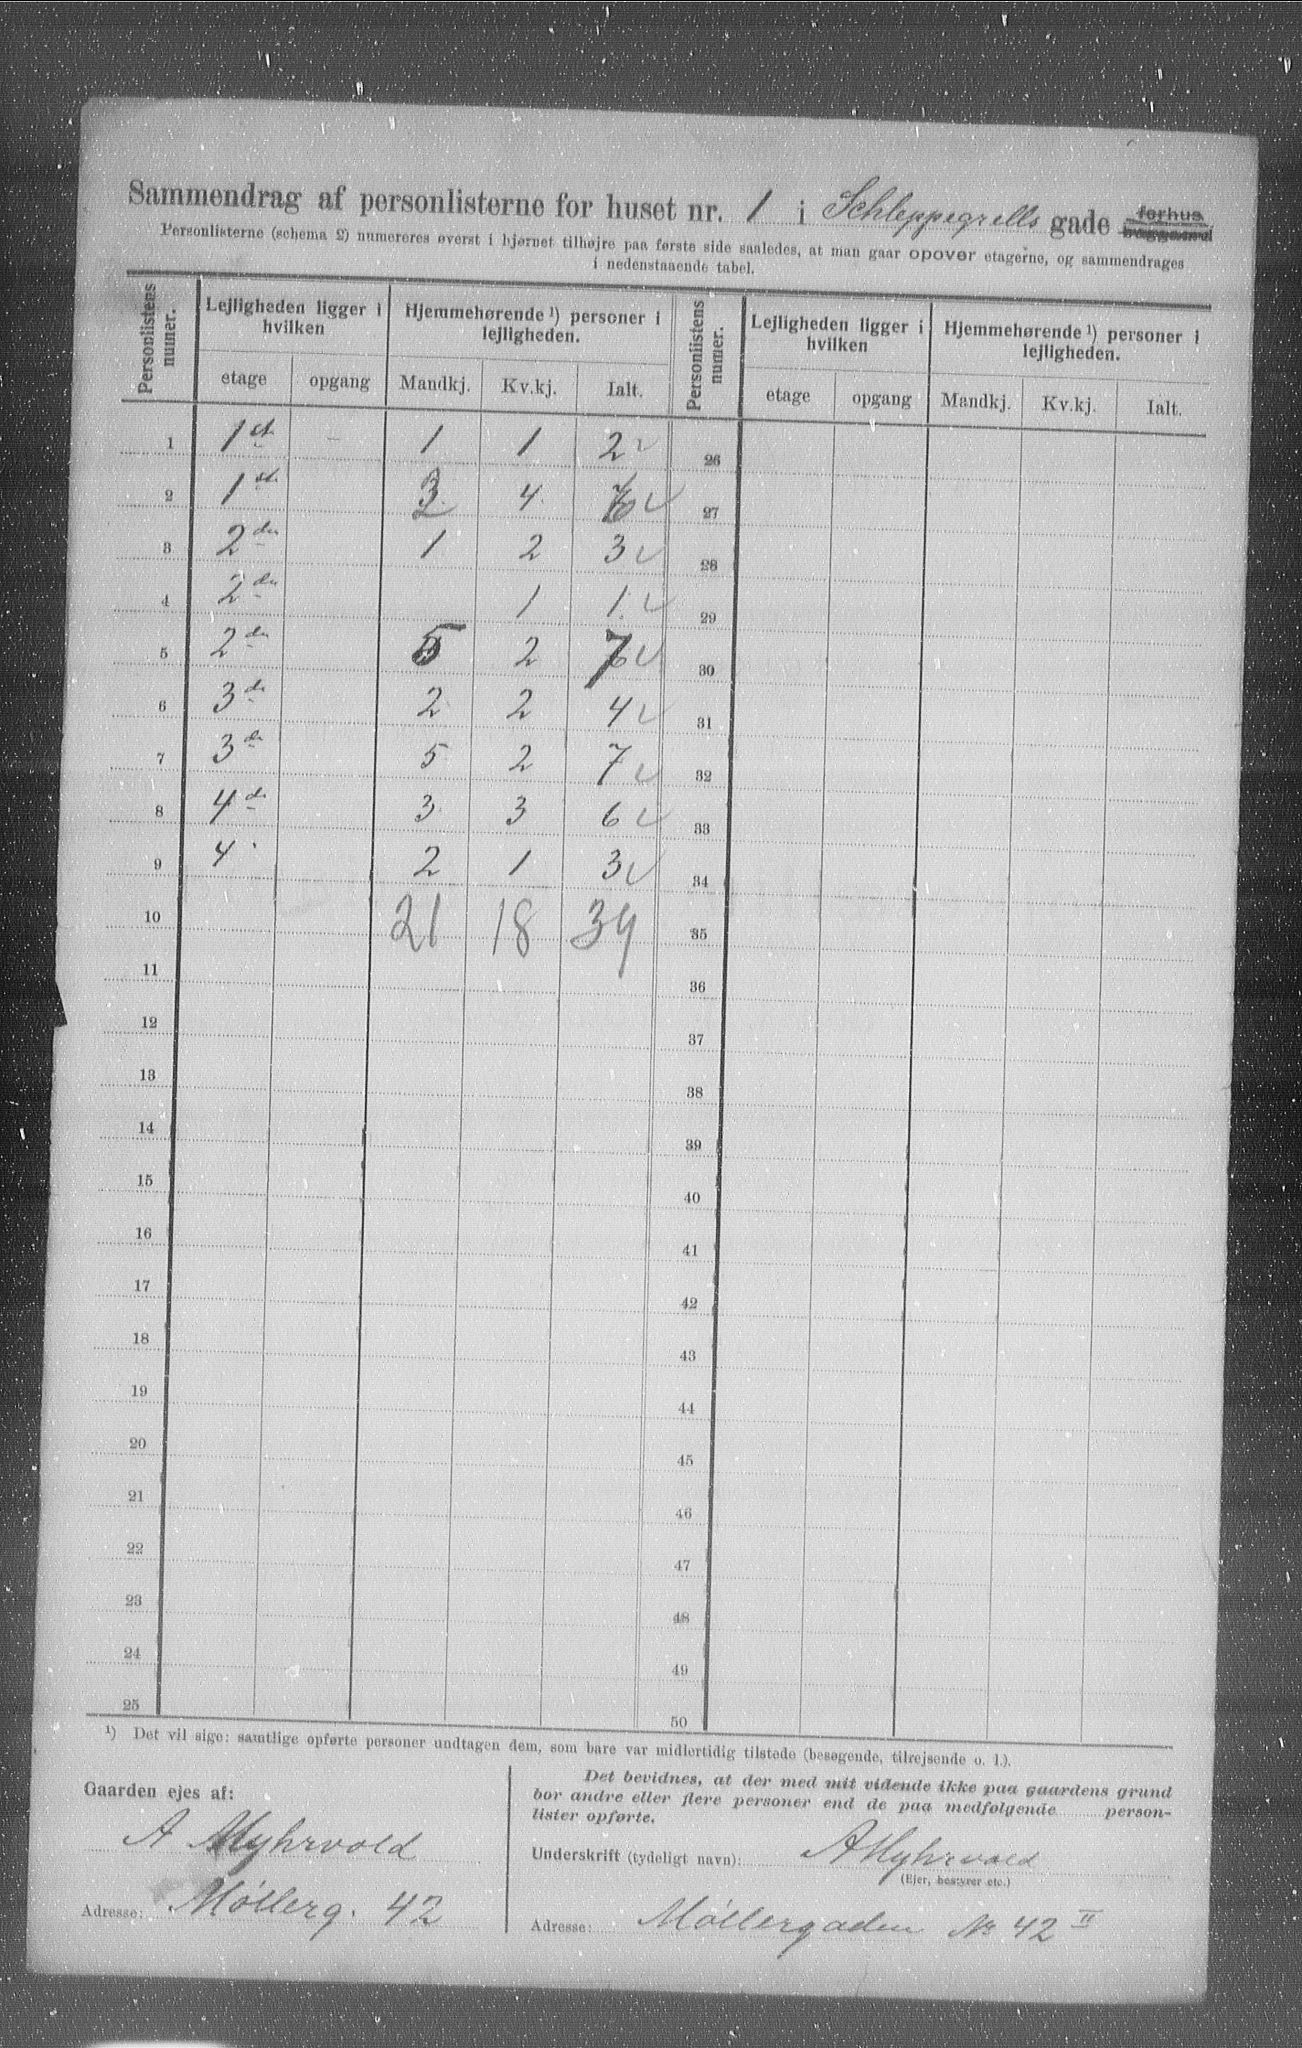 Sammendrag af personlisterne for huset nr. 1 i Schleppegrells gade forhus baggaard
Personlisterne (schema 2) numereres øverst i hjørnet tilhøjre paa første side saaledes, at man gaar opover etagerne, og sammendrages
i nedenstaaende tabel.
Personlistens numer. Lejligheden ligger i hvilken Hjemmehørende ¹) personer i lejligheden. Personlistens numer. Lejligheden ligger i hvilken Hjemmehørende ¹) personer i lejligheden.
etage opgang Mandkj. Kv.kj. Ialt. etage opgang Mandkj. Kv.kj. Ialt.
1 1st - 1 1 2 26
2 1st 2 4 6 27
3 2den 1 2 3 28
4 2den 1 1 29
5 2den 5 2 7 30
6 3de 2 2 4 31
7 3de 5 2 7 32
8 4de 3 3 6 33
9 4 " 2 1 3 34
10 21 18 39 35
11 36
12 37
13 38
14 39
15 40
16 41
17 42
18 43
19 44
20 45
21 46
22 47
23 48
24 49
25 50
¹) Det vil sige: samtlige opførte personer undtagen dem, som bare var midlertidig tilstede (besøgende, tilrejsende o. l.).
Gaarden ejes af:
A Myhrvold
Adresse: Møllerg. 42
Det bevidnes, at der med mit vidende ikke paa gaardens grund
bor andre eller flere personer end de paa medfølgende person-
lister opførte.
Underskrift (tydeligt navn): A Myhrvold
(Ejer, bestyrer etc.)
Adresse: Møllergaden No 42 II